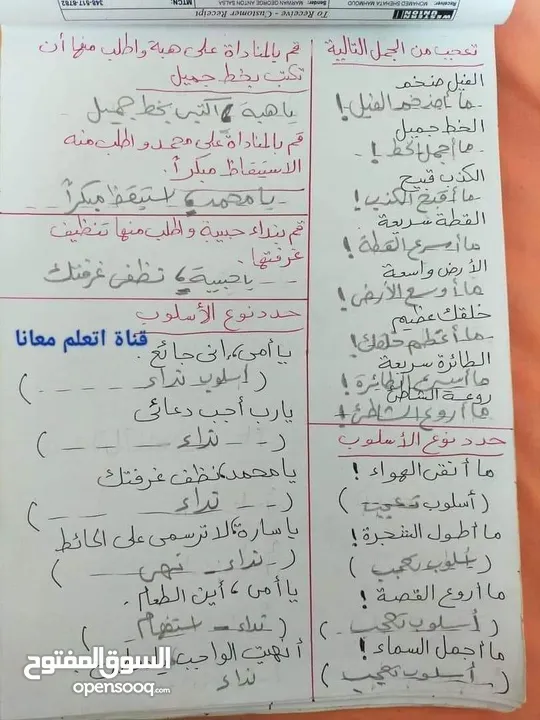 Receiver: MOHAMED SHEHATA MAHMOUD
Sender: MARWAN GEORGE ANTON SALSA
MTCN: 348-517-8782
WESTERN UNION
To Receive - Customer Receipt
تعجب من الجمل التالية
الفيل ضخم
ما أضخم الفيل!
الخط جميل
ما أجمل الخط!
الكذب قبيح
ما أقبح الكذب!
القطة سريعة
ما أسرع القطة!
الأرض واسعة
ما أوسع الأرض!
خلقك عظيم
ما أعظم خلقك!
الطائرة سريعة
ما أسرع الطائرة!
روعة الشاطئ
ما أروع الشاطئ!
حدد نوع الأسلوب
ما أنقى الهواء!
(أسلوب تعجب)
ما أطول الشجرة!
(أسلوب تعجب)
ما أروع القصة!
(أسلوب تعجب)
ما أجمل السماء!
(أسلوب تعجب)
قم بالمناداة على هبة واطلب منها أن
تكتب بخط جميل
يا هبة، اكتبى بخط جميل
قم بالمناداة على محمد واطلب منه
الاستيقاظ مبكراً.
يا محمد، استيقظ مبكراً
قم بنداء حبيبة واطلب منها تنظيف
غرفتها.
يا حبيبة، نظفى غرفتك
حدد نوع الأسلوب
قناة اتعلم معانا
يا أمى، إنى جائع.
(أسلوب نداء)
يارب أجب دعائى
(نداء)
يا محمد، نظف غرفتك
(نداء)
يا سارة، لا ترسمى على الحائط
(نداء - نهى)
يا أمى، أين الطعام.
(نداء - استفهام)
أنهيت الواجب
نداء
السوق المفتوح
opensooq.com